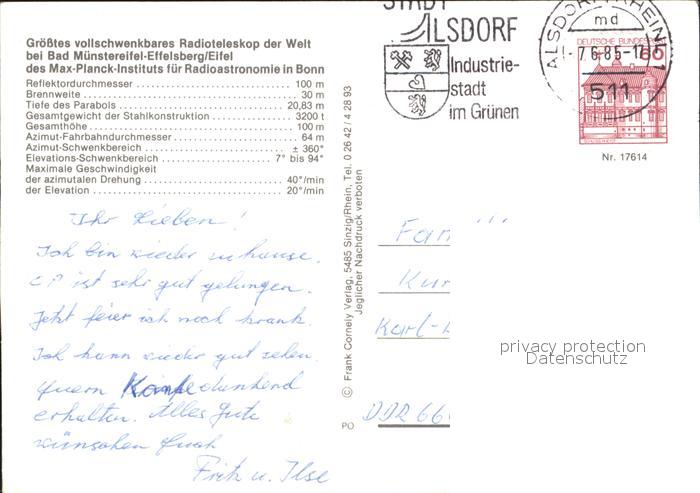 Größtes vollschwenkbares Radioteleskop der Welt
bei Bad Münstereifel-Effelsberg/Eifel
des Max-Planck-Instituts für Radioastronomie in Bonn
Reflektordurchmesser 100 m
Brennweite 30 m
Tiefe des Parabols 20,83 m
Gesamtgewicht der Stahlkonstruktion 3200 t
Gesamthöhe 100 m
Azimut-Fahrbahndurchmesser 64 m
Azimut-Schwenkbereich ± 360°
Elevations-Schwenkbereich 7° bis 94°
Maximale Geschwindigkeit
der azimutalen Drehung 40°/min
der Elevation 20°/min
Ihr Lieben!
Ich bin wieder zuhause.
OP ist sehr gut gelungen.
Jetzt feier ich noch krank.
Ich kann wieder gut sehen.
dankend
erhalten. Alles Gute
wünschen Euch
Fritz u. Ilse
© Frank Cornely Verlag, 5485 Sinzig/Rhein, Tel. 0 26 42 / 4 28 93
Jeglicher Nachdruck verboten
PO
STADT
ALSDORF
Industrie-
stadt
im Grünen
ALSDORF, RHEINL
md
-7.6.85-17
511
DEUTSCHE BUNDESPOST
60
Nr. 17614
Fam
Kur
Karl-
DDR 66
privacy protection
Datenschutz